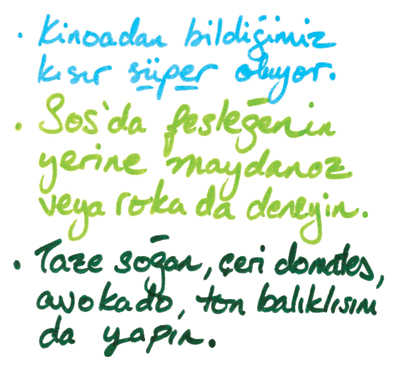 • Kinoadan bildiğimiz
kısır süper oluyor.
• Sos'da fesleğenin
yerine maydanoz
veya roka da deneyin.
• Taze soğan, çeri domates,
avokado, ton balıklısını
da yapın.